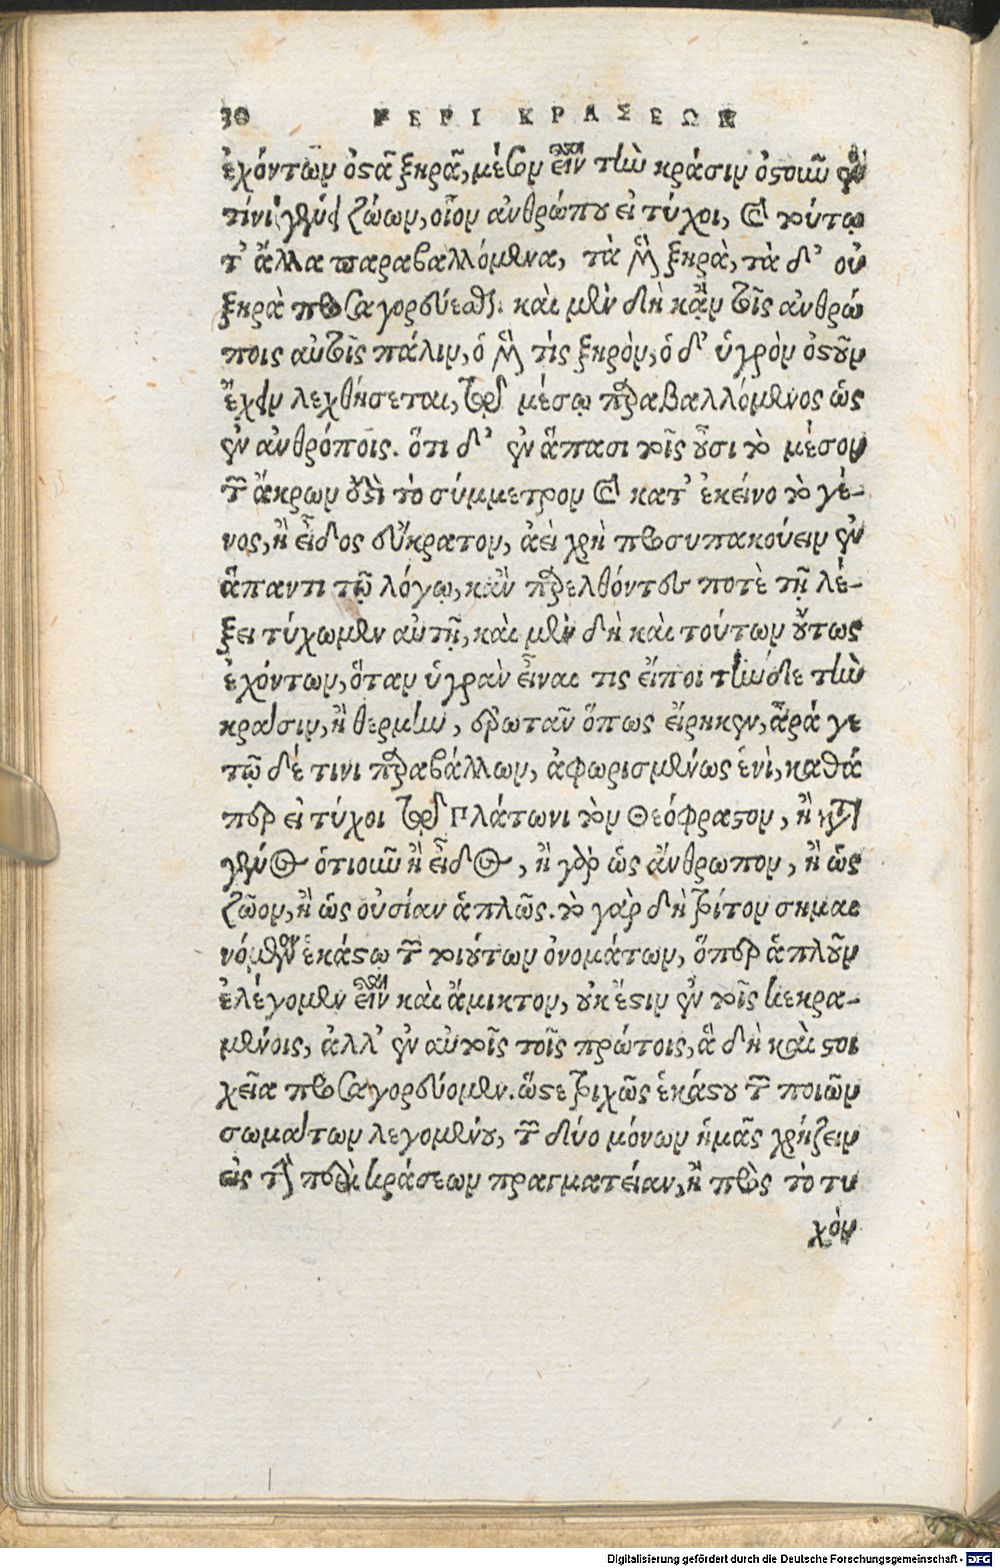 30 ΠΕΡΙ ΚΡΑΣΕΩΝ
ἐχόντων ὀστᾶ ξηρᾶ, μέσον εἶναι τὴν κράσιν ὁτιοῦν
τινὶ γένει ζώων, οἷον ἀνθρώπου εἰ τύχοι, καὶ τούτῳ
τ' ἄλλα παραβαλλόμενα, τὰ μὲν ξηρὰ, τὰ δ' οὐ
ξηρὰ προσαγορεύεσθαι. καὶ μὲν δὴ κᾂν τοῖς ἀνθρώ
ποις αὐτοῖς πάλιν, ὁ μέν τις ξηρὸν, ὁ δ' ὑγρὸν ὀστοῦν
ἔχειν λεχθήσεται, τῷ μέσῳ παραβαλλόμενος ὡς
ἐν ἀνθρόποις. ὅτι δ' ἐν ἅπασι τοῖς οὖσι τὸ μέσον
τῶν ἄκρων ὅστι τὸ σύμμετρον καὶ κατ' ἐκεῖνο τὸ γέ-
νος, ἢ εἶδος εὔκρατον, ἀεὶ χρὴ προσυπακούειν ἐν
ἅπαντι τῷ λόγῳ, κᾂν παρελθόντες ποτὲ τῇ λέ-
ξει τύχωμεν αὐτῇ, καὶ μὲν δὴ καὶ τούτων οὕτως
ἐχόντων, ὅταν ὑγρὰν εἶναι τις εἴποι τήνδε τὴν
κρᾶσιν, ἢ θερμὴν, ἐρωταῖν ὅπως εἴρηκεν, ἆρά γε
τῷ δέ τινι παραβάλλων, ἀφωρισμένως ἑνὶ, καθά
περ εἰ τύχοι τῷ Πλάτωνι τὸν Θεόφραστον, ἢ κατὰ
γένος ὁτιοῦν ἢ εἶδος, ἢ γὰρ ὡς ἄνθρωπον, ἢ ὡς
ζῶον, ἢ ὡς οὐσίαν ἁπλῶς. τὸ γὰρ δὴ τρίτον σημαι
νόμενον ἑκάστω τῶν τοιούτων ὀνομάτων, ὅπερ ἁπλοῦν
ἐλέγομεν εἶναι καὶ ἄμικτον, οὐκ ἔστιν ἐν τοῖς κεκρα-
μένοις, ἀλλ' ἐν αὐτοῖς τοῖς πρώτοις, ἃ δὴ καὶ στοι
χεῖα προσαγορεύομεν. ὥστε τριχῶς ἑκάστου τῶν ποιῶν
σωμάτων λεγομένου, τῶν δύο μόνων ἡμᾶς χρήζειν
εἰς τὴν περὶ κράσεων πραγματείαν, ἢ πρὸς τὸ τυ
χὸν
Digitalisierung gefördert durch die Deutsche Forschungsgemeinschaft - DFG